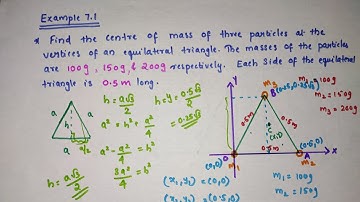 Example 7.1
* Find the centre of mass of three particles at the
vertices of an equilateral triangle. The masses of the particles
are 100g, 150g, & 200g respectively. Each side of the equilateral
triangle is 0.5m long.
a
a
h
a/2
h = a√3/2
a² = h² + a²/4
a² - a²/4 = h²
3a²/4 = h²
h = a√3/2
h = y = 0.5√3/2
= 0.25√3
Y
m₃
B (0.25, 0.25√3)
0.5m
0.5m
C
(X,Y)
0.5m
(0,0) O
m₁
A
m₂
X
m₁ = 100g
m₂ = 150g
m₃ = 200g
(x₁, y₁) = (0,0)
m₁ = 100g
m₂ = 150g